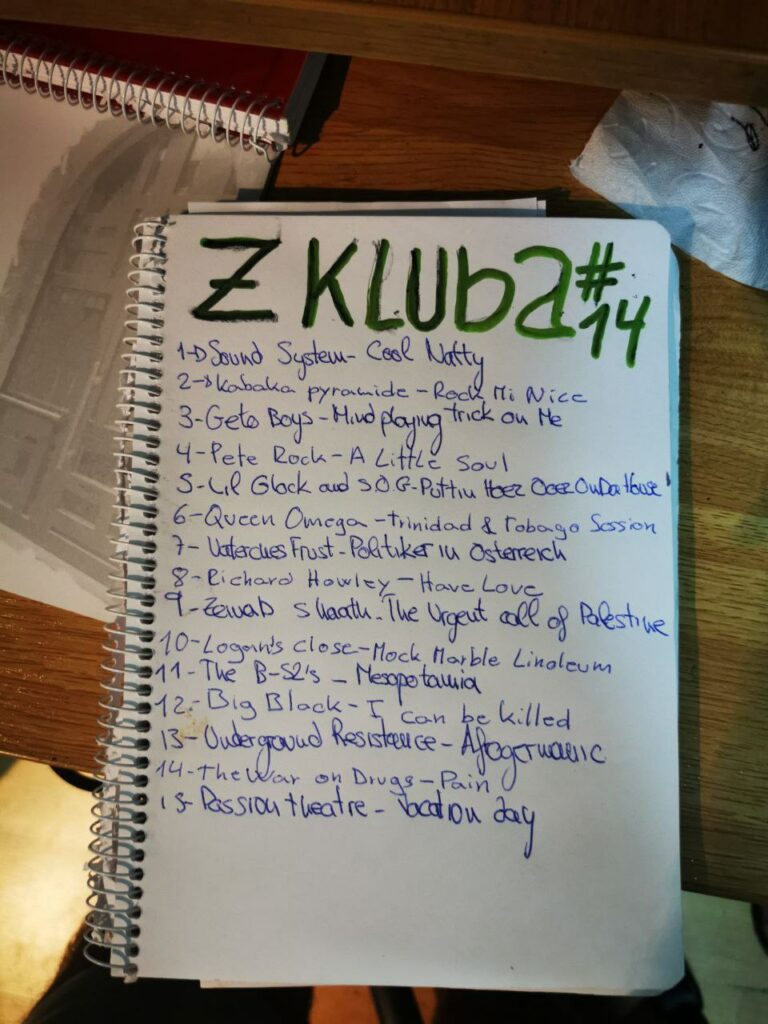 Z KLUba #14
1-D Sound System - Cool Natty
2-> Kabaka pyramide - Rock Mi Nice
3- Geto Boys - Mind playing trick on Me
4- Pete Rock - A Little Soul
5- Lil Glock and S.O.G - Puttin Hoez On Da House
6- Queen Omega - Trinidad & Tobago Session
7- Frust - Politiker in Österreich
8- Richard Howley - Have Love
9- Zewab Shaath - The Urgent call of Palestine
10- Logan's close - Mock Marble Linoleum
11- The B-52's - Mesopotamia
12- Big Black - I can be killed
13- Underground Resistance - Afrogermanic
14- The War on Drugs - Pain
15- Passion theatre - Vacation day